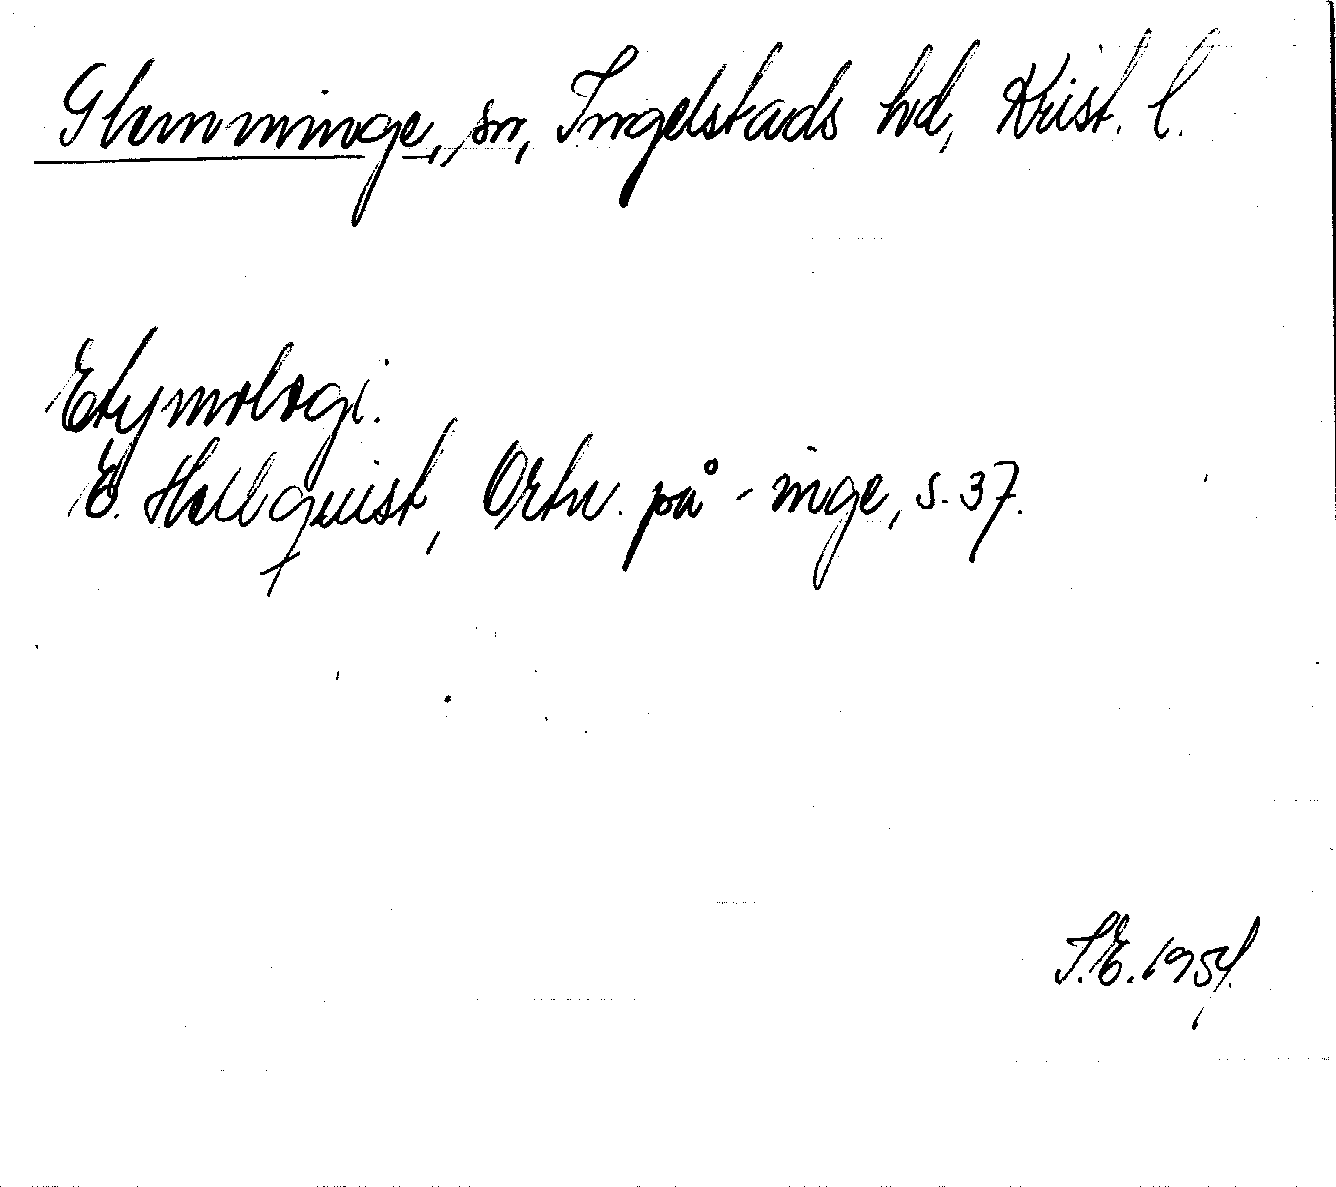 Glemminge, sn, Ingelstads hd, Krist. l.
Etymologi.
E. Hellquist, Ortn. på -inge, s. 37.
S.E. 1954.